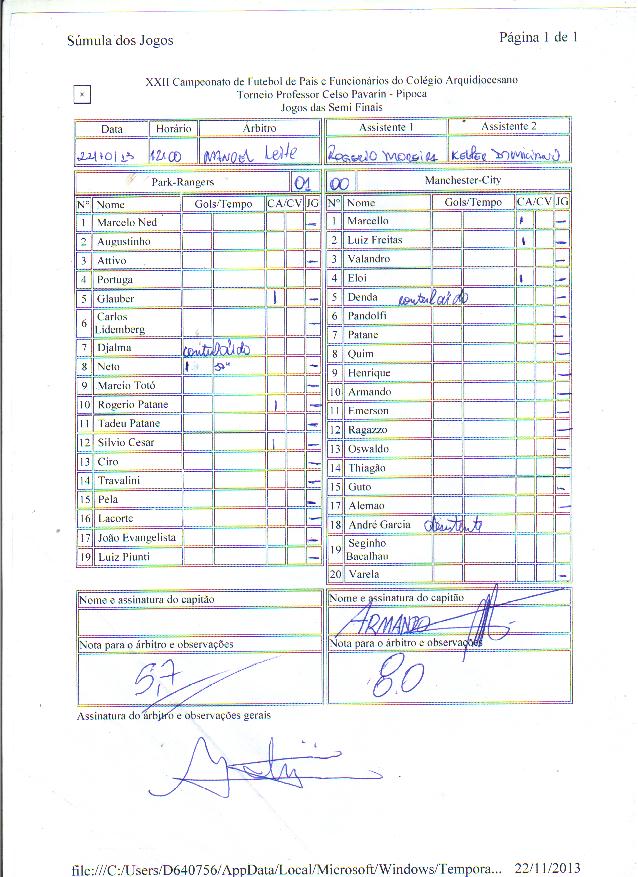 Súmula dos Jogos
Página 1 de 1
XXII Campeonato de Futebol de Pais e Funcionários do Colégio Arquidiocesano
Torneio Professor Celso Pavarin - Pipoca
Jogos das Semi Finais
Data Horário Arbitro Assistente 1 Assistente 2
12:00 MANOEL Leite ROGERIO MOREIRA
Park-Rangers 01 00 Manchester-City
Nº Nome Gols/Tempo CA/CV JG Nº Nome Gols/Tempo CA/CV JG
1 Marcelo Ned 1 Marcello
2 Augustinho 2 Luiz Freitas
3 Attivo 3 Valandro
4 Portuga 4 Eloi
5 Glauber 5 Denda contundido
6 Carlos Lidemberg 6 Pandolfi
7 Djalma contundido 7 Patane
8 Neto 8 Quim
9 Marcio Totó 9 Henrique
10 Rogerio Patane 10 Armando
11 Tadeu Patane 11 Emerson
12 Silvio Cesar 12 Ragazzo
13 Ciro 13 Oswaldo
14 Travalini 14 Thiagão
15 Pela 15 Guto
16 Lacorte 17 Alemao
17 João Evangelista 18 André Garcia
19 Luiz Piunti 19 Seginho Bacalhau
20 Varela
Nome e assinatura do capitão Nome e assinatura do capitão
ARMANDO
Nota para o árbitro e observações Nota para o árbitro e observações
5,7 8.0
Assinatura do árbitro e observações gerais
file:///C:/Users/D640756/AppData/Local/Microsoft/Windows/Tempora... 22/11/2013